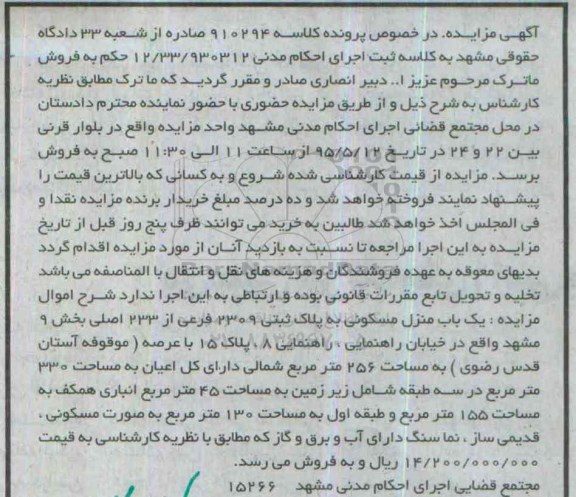 آگهـی مزایـده. در خصوص پرونده کلاسـه ۹۱۰۲۹۴ صادره از شـعبه ۳۳ دادگاه
حقوقی مشهد به کلاسه ثبت اجرای احکام مدنی ۱۲/۳۳/۹۳۰۳۱۲ حکم به فروش
ماتـرک مرحـوم عزیز ا.. دبیر انصاری صادر و مقرر گردیـد که ما ترک مطابق نظریه
کارشناس به شرح ذیل و از طریق مزایده حضوری با حضور نماینده محترم دادستان
در محل مجتمع قضائی اجرای احکام مدنی مشـهد واحد مزایده واقع در بلوار قرنی
بیـن ۲۲ و ۲۴ در تاریـخ ۹۵/۵/۱۲ از سـاعت ۱۱ الـی ۱۱:۳۰ صبـح به فروش
برسـد. مزایده از قیمت کارشناسی شده شـروع و به کسانی که بالاترین قیمت را
پیشـنهاد نمایند فروخته خواهد شد و ده درصد مبلغ خریدار برنده مزایده نقدا و
فی المجلس اخذ خواهد شد طالبین به خرید می توانند ظرف پنج روز قبل از تاریخ
مزایـده به این اجرا مراجعه تا نسـبت به بازدید آنـان از مورد مزایده اقدام گردد
بدیهای معوقه به عهده فروشندگان و هزینه های نقل و انتقال با المناصفه می باشد
تخلیه و تحویل تابع مقررات قانونی بوده و ارتباطی به این اجرا ندارد شـرح اموال
مزایده : یک باب منزل مسکونی به پلاک ثبتی ۲۳۰۹ فرعی از ۲۳۳ اصلی بخش ۹
مشهد واقع در خیابان راهنمایی ، راهنمایی ۸ ، پلاک ۱۵ با عرصه ( موقوفه آستان
قدس رضوی ) به مساحت ۲۵۶ متر مربع شمالی دارای کل اعیان به مساحت ۳۳۰
متر مربع در سـه طبقه شـامل زیر زمین به مساحت ۴۵ متر مربع انباری همکف به
مساحت ۱۵۵ متر مربع و طبقه اول به مساحت ۱۳۰ متر مربع به صورت مسکونی ،
قدیمی ساز ، نما سنگ دارای آب و برق و گاز که مطابق با نظریه کارشناسی به قیمت
۱۴/۲۰۰/۰۰۰/۰۰۰ ریال و به فروش می رسد.
مجتمع قضایی اجرای احکام مدنی مشهد ۱۵۲۶۶